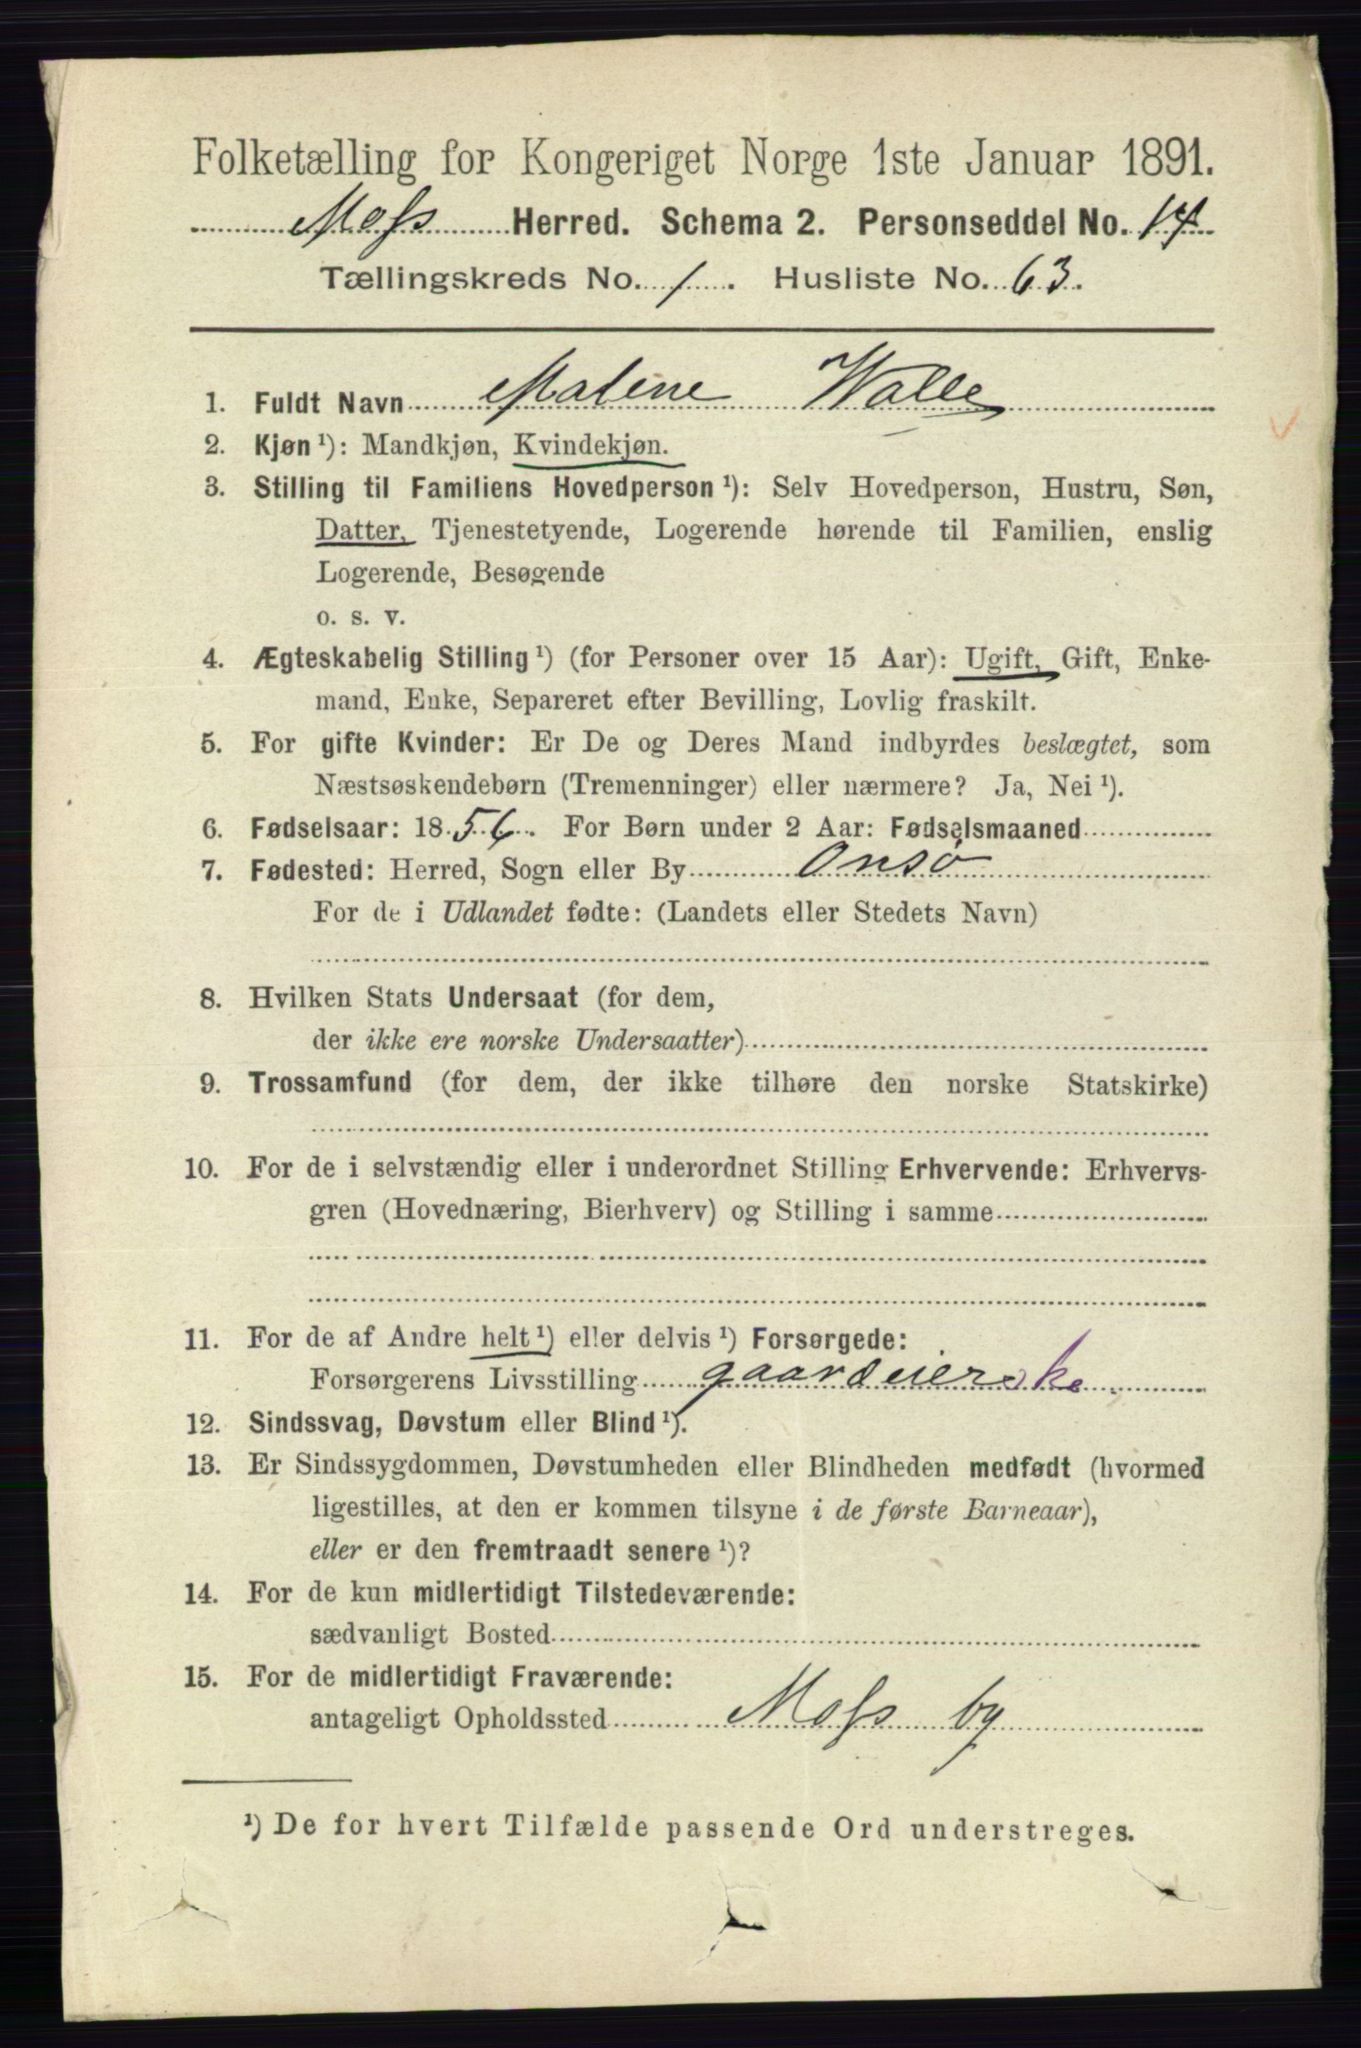 Folketælling for Kongeriget Norge 1ste Januar 1891.
Moss Herred. Schema 2. Personseddel No. 14
Tællingskreds No. 1. Husliste No. 63.
1. Fuldt Navn Malene Walle
2. Kjøn ¹): Mandkjøn, Kvindekjøn.
3. Stilling til Familiens Hovedperson ¹): Selv Hovedperson, Hustru, Søn,
Datter, Tjenestetyende, Logerende hørende til Familien, enslig
Logerende, Besøgende
o. s. v.
4. Ægteskabelig Stilling ¹) (for Personer over 15 Aar): Ugift, Gift, Enke-
mand, Enke, Separeret efter Bevilling, Lovlig fraskilt.
5. For gifte Kvinder: Er De og Deres Mand indbyrdes beslægtet, som
Næstsøskendebørn (Tremenninger) eller nærmere? Ja, Nei ¹).
6. Fødselsaar: 1856. For Børn under 2 Aar: Fødselsmaaned
7. Fødested: Herred, Sogn eller By Onsø
For de i Udlandet fødte: (Landets eller Stedets Navn)
8. Hvilken Stats Undersaat (for dem,
der ikke ere norske Undersaatter)
9. Trossamfund (for dem, der ikke tilhøre den norske Statskirke)
10. For de i selvstændig eller i underordnet Stilling Erhvervende: Erhvervs-
gren (Hovednæring, Bierhverv) og Stilling i samme
11. For de af Andre helt ¹) eller delvis ¹) Forsørgede:
Forsørgerens Livsstilling gaardeierske
12. Sindssvag, Døvstum eller Blind ¹).
13. Er Sindssygdommen, Døvstumheden eller Blindheden medfødt (hvormed
ligestilles, at den er kommen tilsyne i de første Barneaar),
eller er den fremtraadt senere ¹)?
14. For de kun midlertidigt Tilstedeværende:
sædvanligt Bosted
15. For de midlertidigt Fraværende:
antageligt Opholdssted Moss by
¹) De for hvert Tilfælde passende Ord understreges.